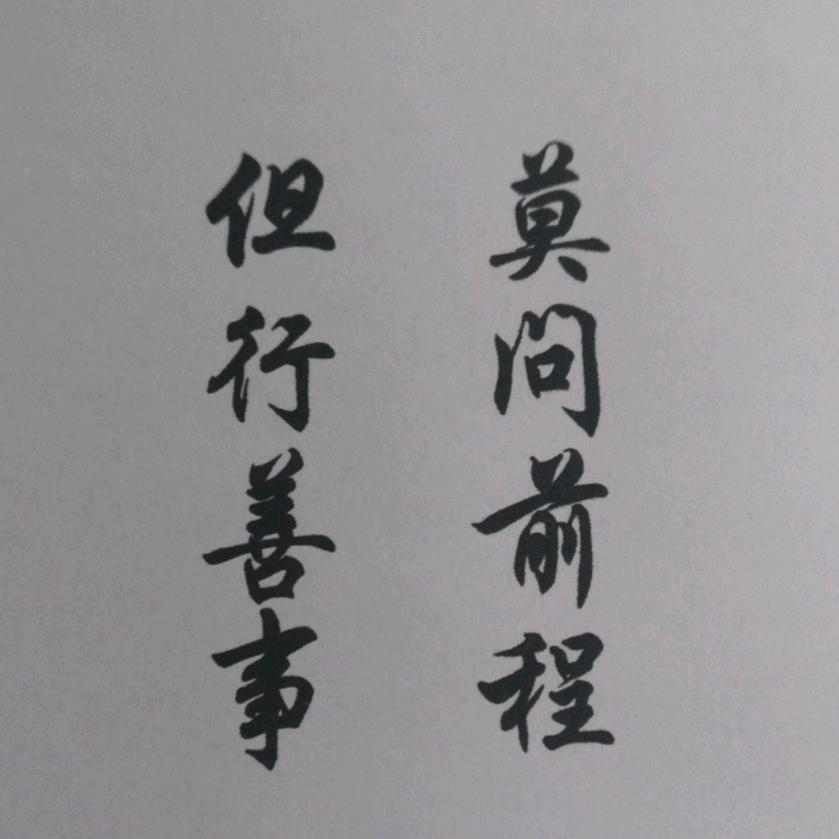 但行善事
莫問前程